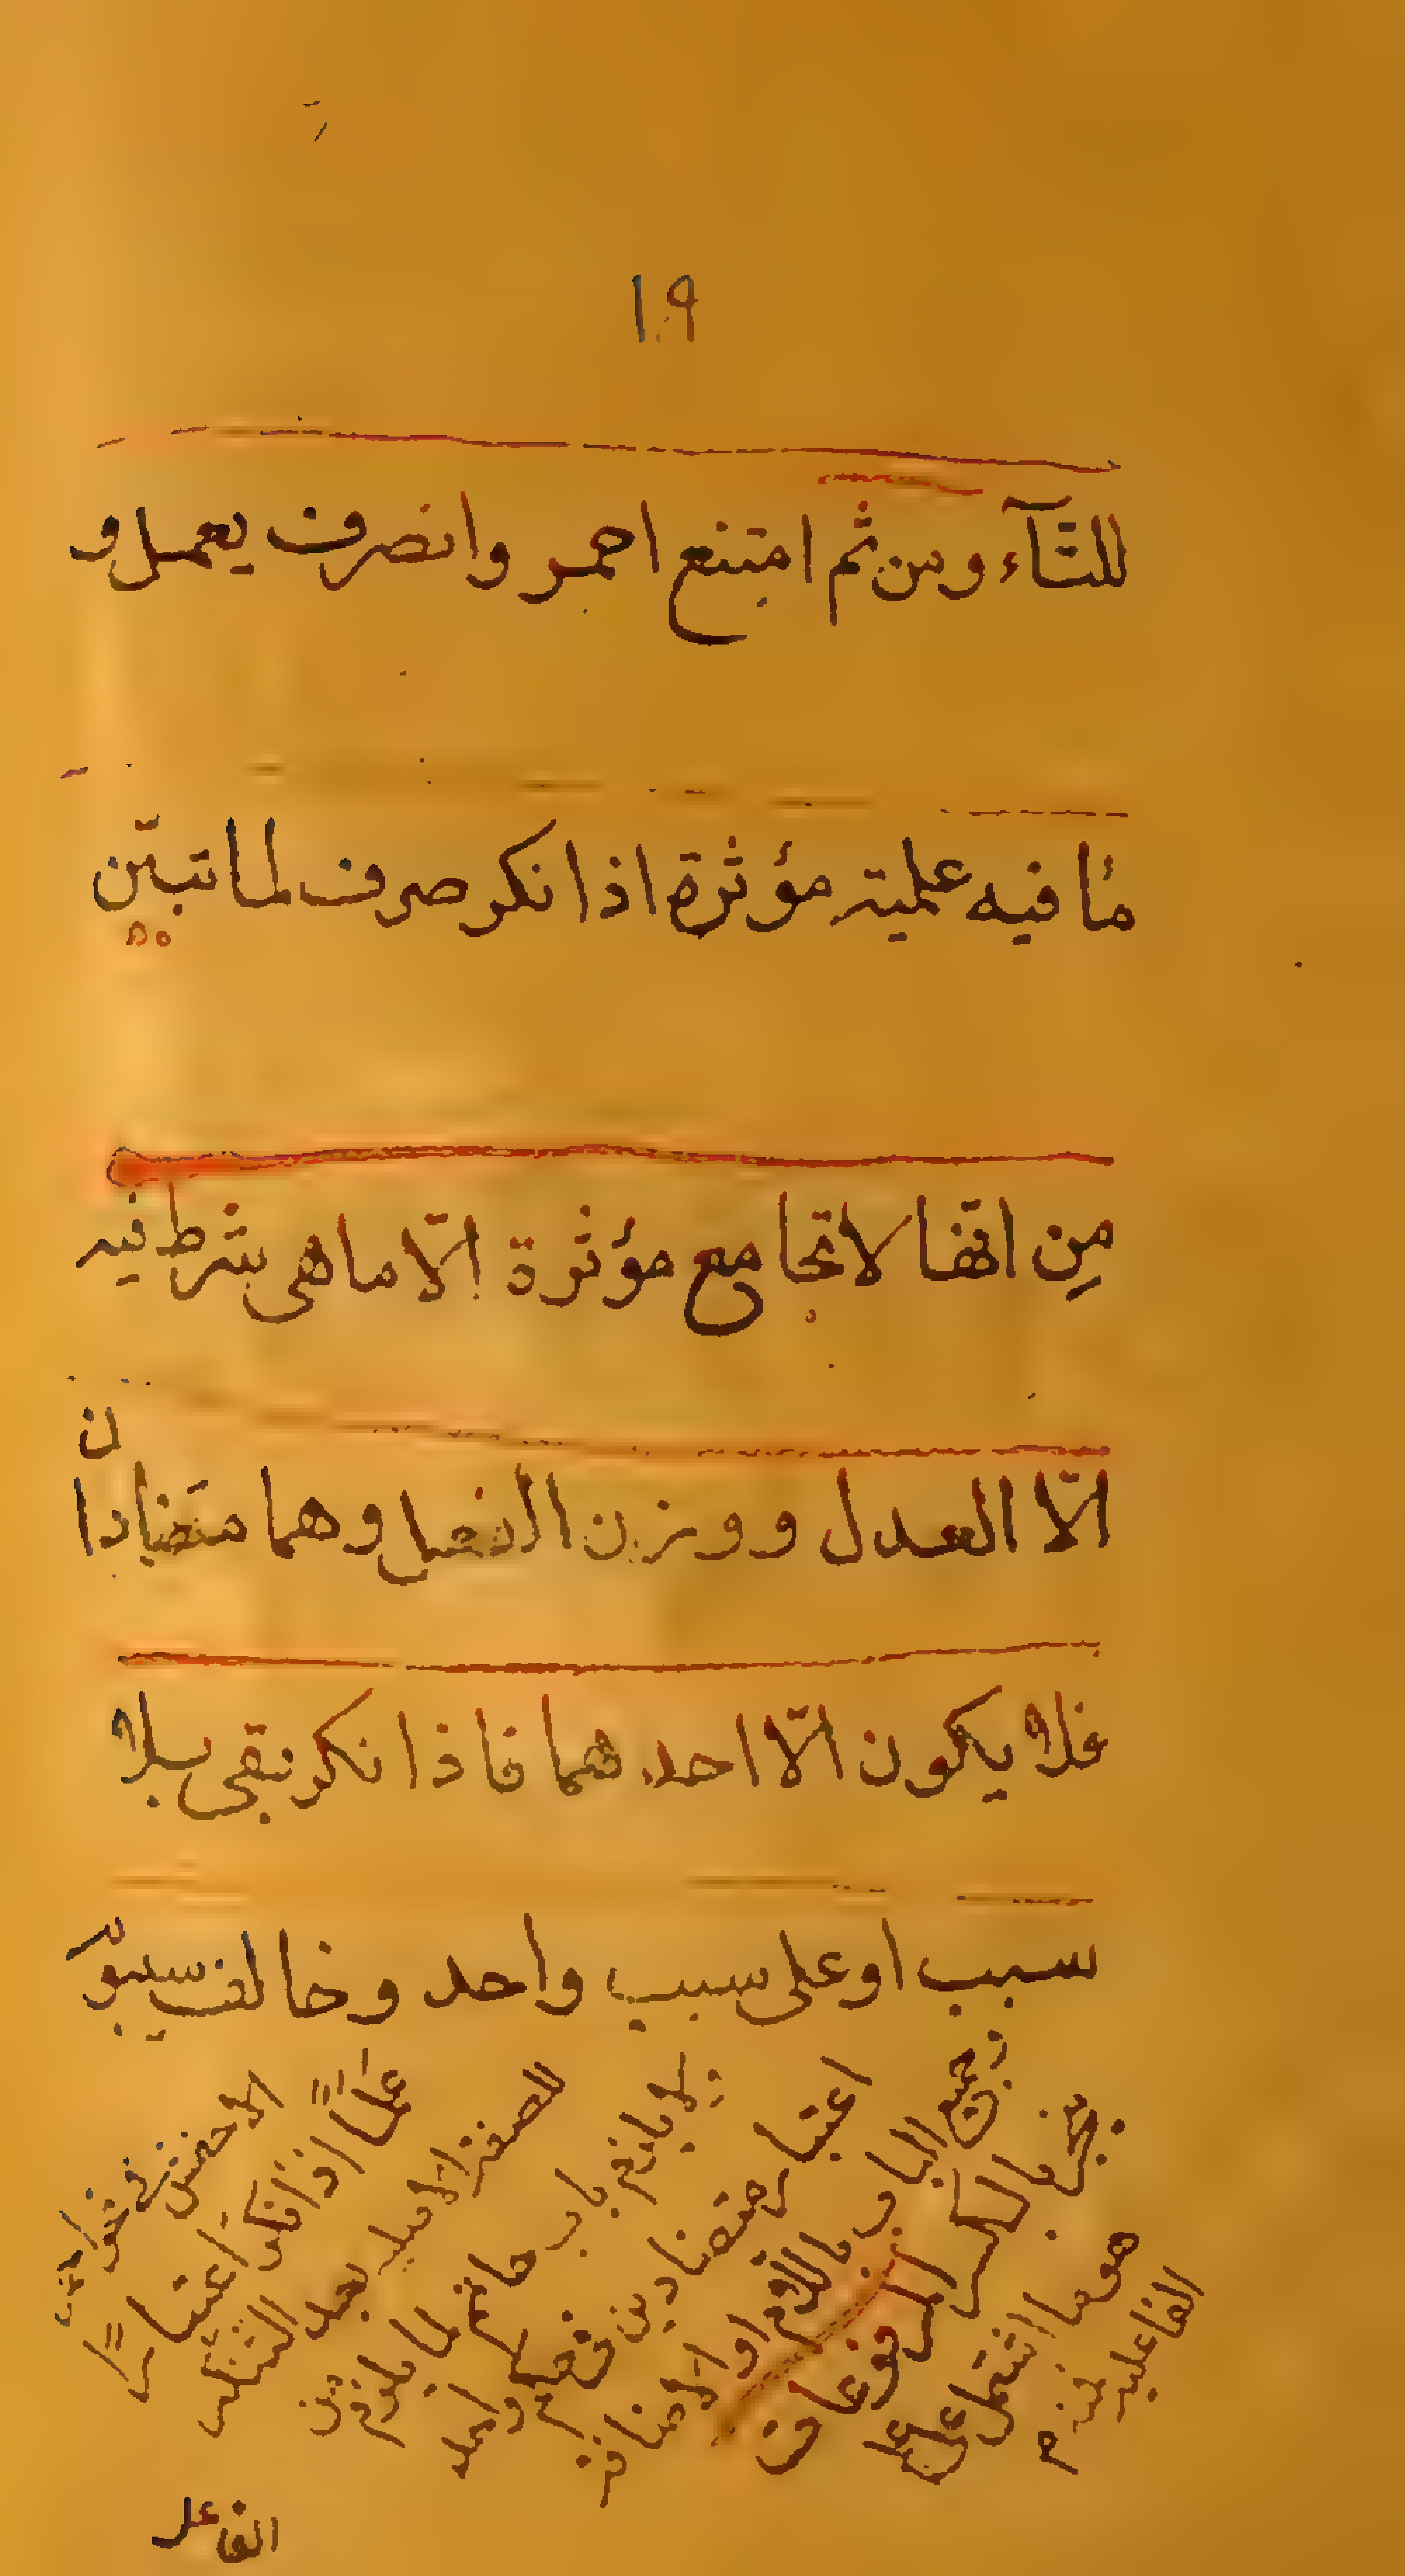 ١٠٩
للتآء ومن ثم امتنع احمر وانصرف يعمل و
ما فيه علمية مؤثرة اذا نكر صرف لما تبيّن
مِن انّها لا تجامع مؤثرة الّا ما هى شرط فيه
الّا العدل ووزن الفعل وهما متضادان
فلا يكون الّا احدهما فاذا نكر بقى بلا
سبب او على سبب واحد وخالف سيبويه
الاخفش فى نحو احمر
علمًا اذا نكر اعتبارًا
للصفة الاصلية بعد التنكير
ولا يلزم باب حاتم لما يلزم من
اعتبار متضادين فى حكم واحد
وجميع الباب باللام او الاضافة
ينجر بالكسر المرفوعات
هو ما اشتمل على علم
الفاعلية فمنه
الفاعل